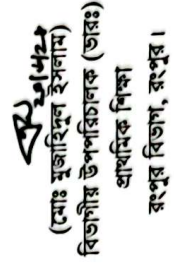 (মোঃ মুজাহিদুল ইসলাম)
বিভাগীয় উপপরিচালক (ভারঃ)
প্রাথমিক শিক্ষা
রংপুর বিভাগ, রংপুর।